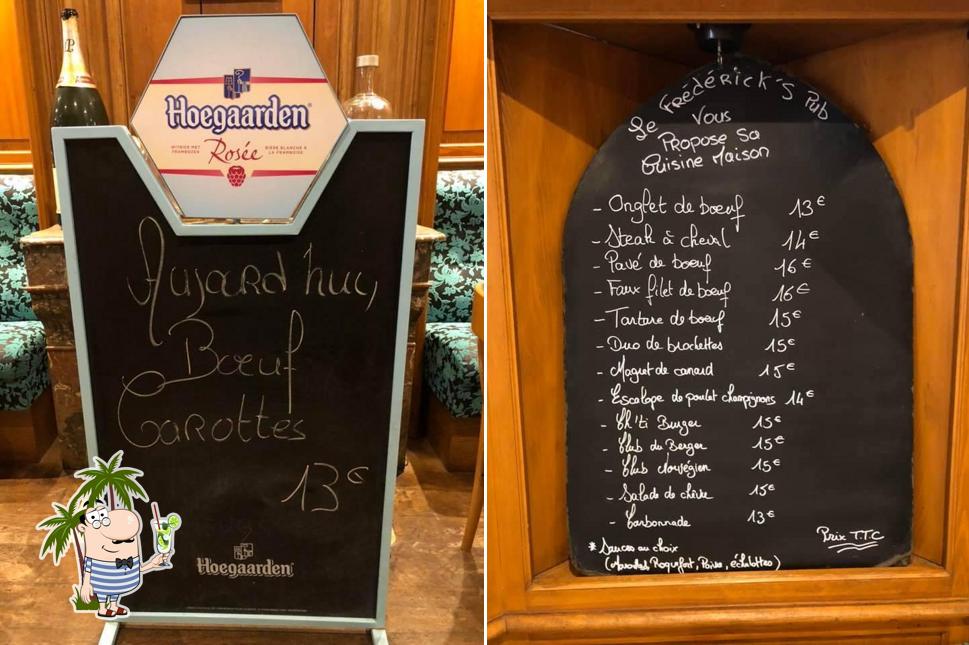 Hoegaarden®
WITBIER MET
FRAMBOZEN
Rosée
BIÈRE BLANCHE À
LA FRAMBOISE
Aujord'hui,
Bœuf
Carottes
13€
Hoegaarden
Le FRÉDÉRICK'S Pub
Vous
Propose Sa
Cuisine Maison
- Onglet de bœuf 13€
- Steak à cheval 14€
- Pavé de bœuf 16€
- Faux filet de bœuf 16€
- Tartare de bœuf 15€
- Duo de brochettes 15€
- Magret de canard 15€
- Escalope de poulet champignons 14€
- Ch'ti Burger 15€
- Club du Berger 15€
- Club Norvégien 15€
- Salade de chèvre 15€
- Carbonnade 13€
Prix T.T.C
* Sauces au choix
(Maroilles, Roquefort, Poivre, échalottes)